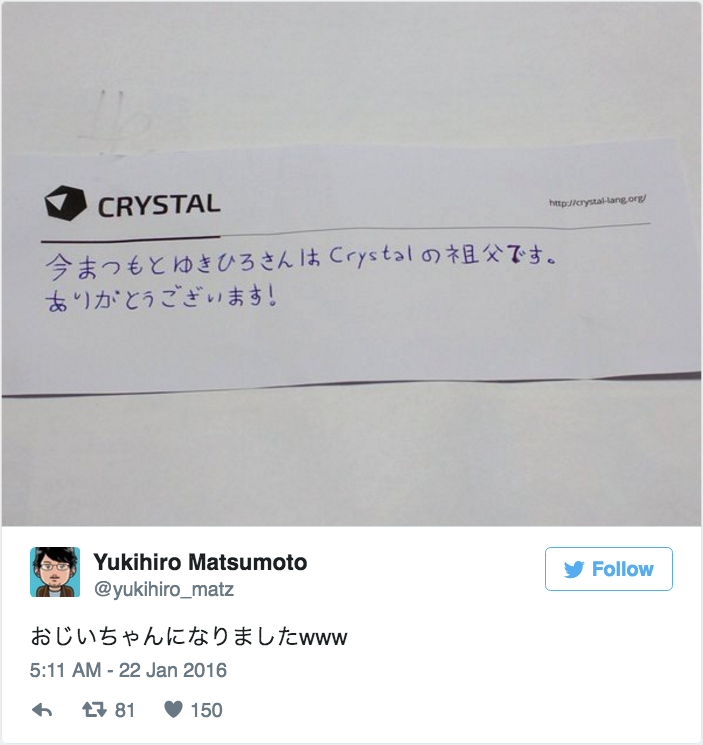 CRYSTAL
http://crystal-lang.org/
今まつもとゆきひろさんはCrystalの祖父です。
ありがとうございます!
Yukihiro Matsumoto
@yukihiro_matz
Follow
おじいちゃんになりましたwww
5:11 AM - 22 Jan 2016
81
150